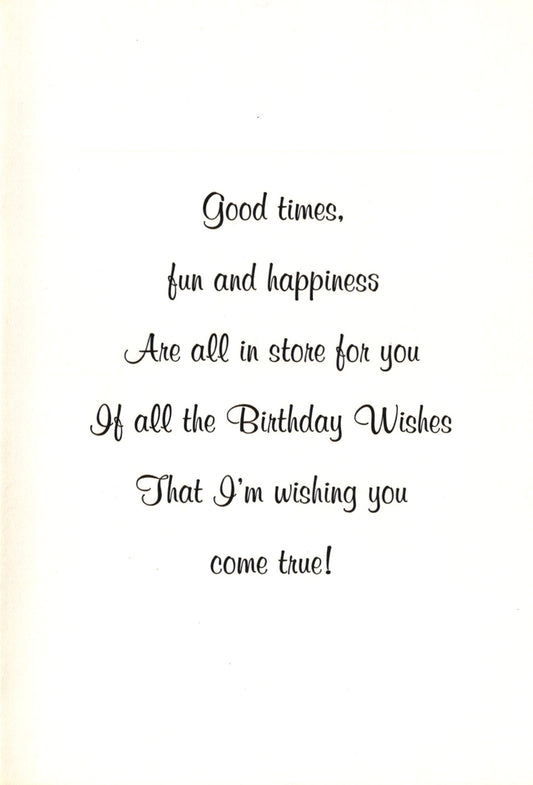 Good times,
fun and happiness
Are all in store for you
If all the Birthday Wishes
That I'm wishing you
come true!